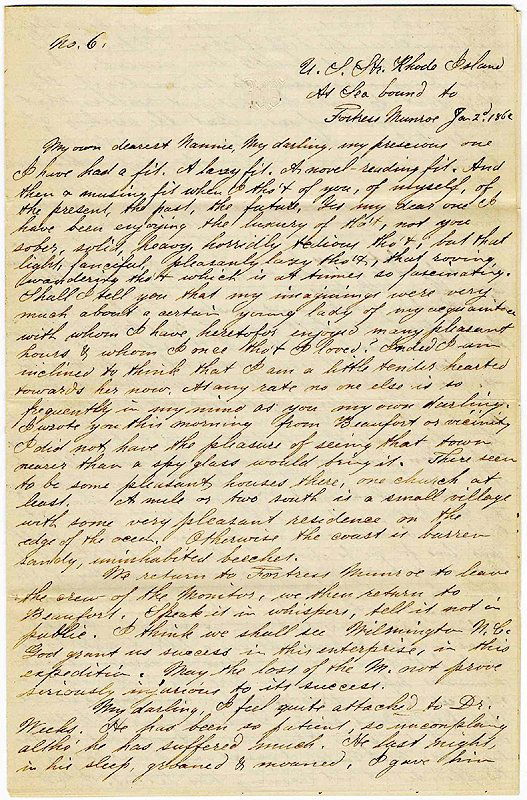 No. 6.
U. S. Str. Rhode Island
At Sea bound to
Fortress Munroe Jan 2d. 1862
My own dearest Nannie, My darling, my prescious one
I have had a fit. A lazy fit. A novel-reading fit. And
then a musing fit when I tho't of you, of myself, of
the present, the past, the future. Yes my dear one I
have been enjoying the luxury of tho't not you
sober, solid, heavy, horridly tedious tho't, but that
light, fanciful pleasanly lazy tho't, that roving,
wandering tho't which is at times so fascinating.
Shall I tell you that my imaginings were very
much about a certain young lady of my acquaintance
with whom I have heretofor enjoyed many pleasant
hours & whom I once tho't I loved? Indeed I am
inclined to think that I am a little tender hearted
towards her now. At any rate no one else is so
frequently in my mind as you my own darling.
I wrote you this morning from Beaufort or vicinity
I did not have the pleasure of seeing that town
nearer than a spy glass would bring it. There seem
to be some pleasant houses there, one church at
least. A mile or two south is a small village
with some very pleasant residence on the
edge of the ocean. Otherwise the coast is barren
sandy, uninhabited beeches.
We return to Fortress Munroe to leave
the crew of the Monitor, we then return to
Beaufort. Speak it in whispers, tell it not in
public. I think we shall see Wilmington N. C.
God grant us success in this enterprise, in this
expedition. May the loss of the M. not prove
seriously injurious to its success.
My darling, I feel quite attached to Dr.
Weeks. He has been so patient, so uncomplaing
altho' he has suffered much. He last night,
in his sleep, groaned & moaned, I gave him